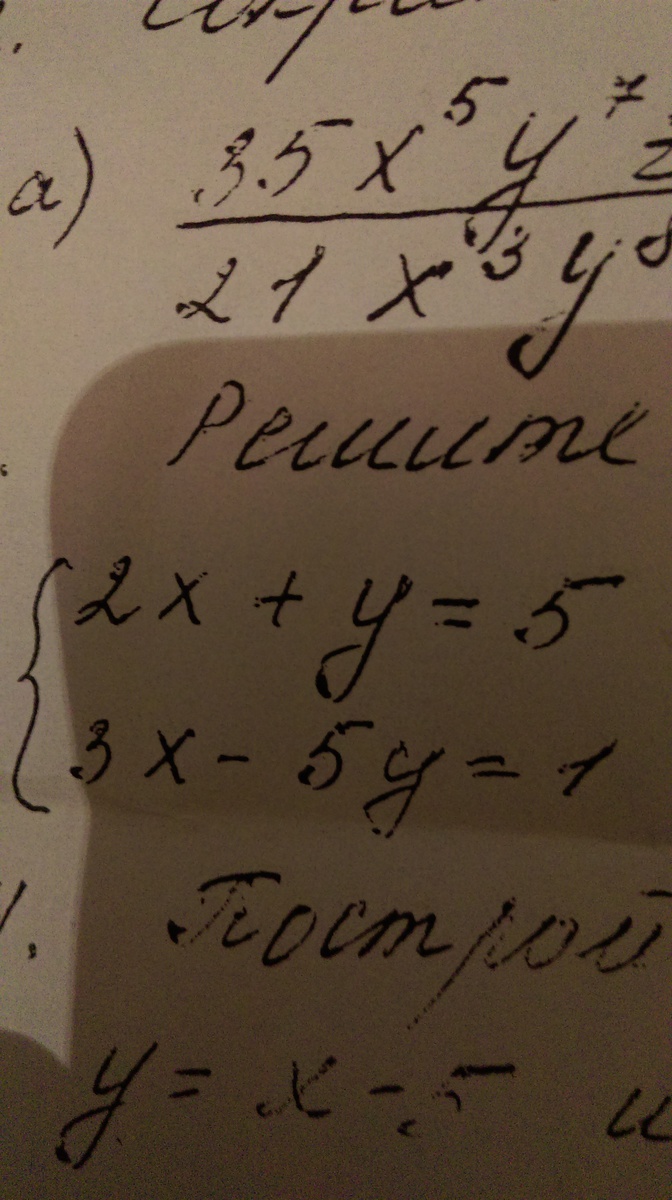 а) 35x⁵y⁷
21 x³y⁸
Решите
2x + y = 5
3x - 5y = 1
Построй
y = x - 5 и